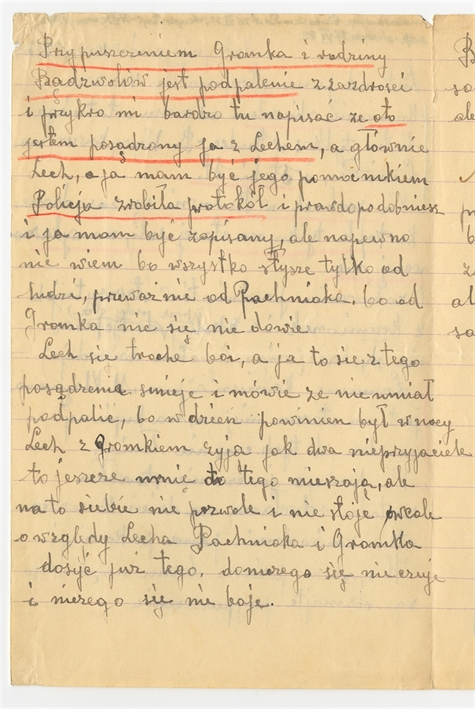 Przypuszczeniem Gromka z rodziny
Radzwołów jest podpalenie z zazdrości
i przykro mi bardzo tu napisać ze oto
jestem posądzony ja z Lechem, a głównie
Lech, a ja mam być jego pomocnikiem
Policja zrobiła protokół i prawdopodobnież
i ja mam być zapisany, ale napewno
nie wiem bo wszystko słysze tylko od
ludzi, przeważnie od Pachniaka, bo od
Gromka nic się nie dowie.
Lech się troche boi, a ja to się z tego
posądzenia smieje i mówie ze nie umiał
podpalić, bo w dzień powinien był w nocy
Lech z Gromkiem zyja jak dwa nieprzyjaciele
to jeszcze mnie do tego mieszaja, ale
na to siebie nie pozwole i nie stoje wcale
o względy Lecha Pachniaka i Gromka
dosyć już tego, doniczego się nie czuje
i niczego się nie boje.